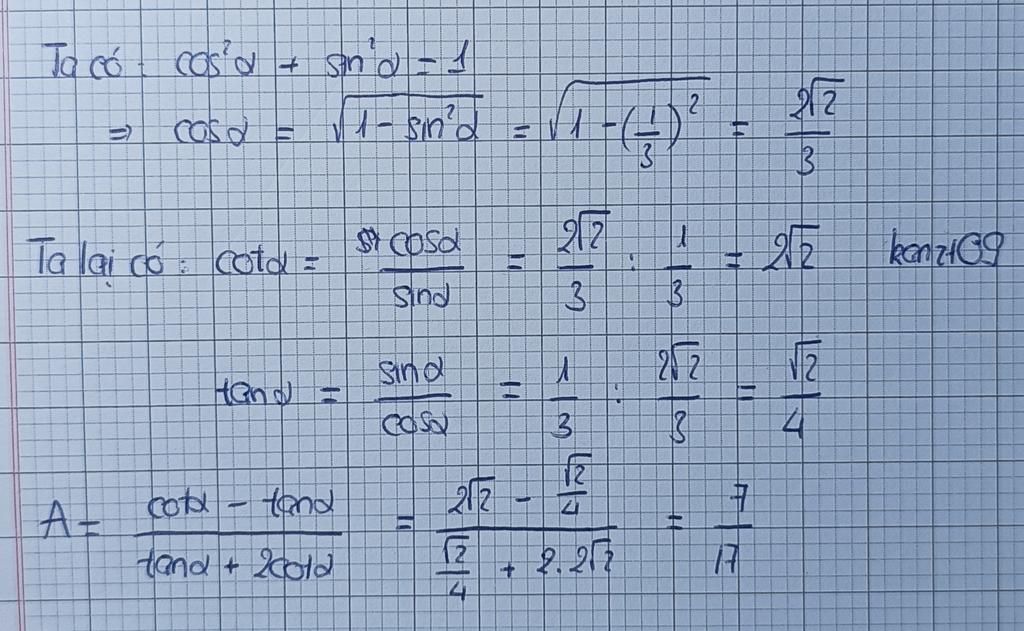 Ta có : cos²α + sin²α = 1
⇒ cosα = √(1 - sin²α) = √(1 - (1/3)²) = 2√2/3
Ta lại có : cotα = cosα/sinα = 2√2/3 : 1/3 = 2√2
tanα = sinα/cosα = 1/3 : 2√2/3 = √2/4
A = (cotα - tanα)/(tanα + 2cotα) = (2√2 - √2/4)/(√2/4 + 2.2√2) = 7/17